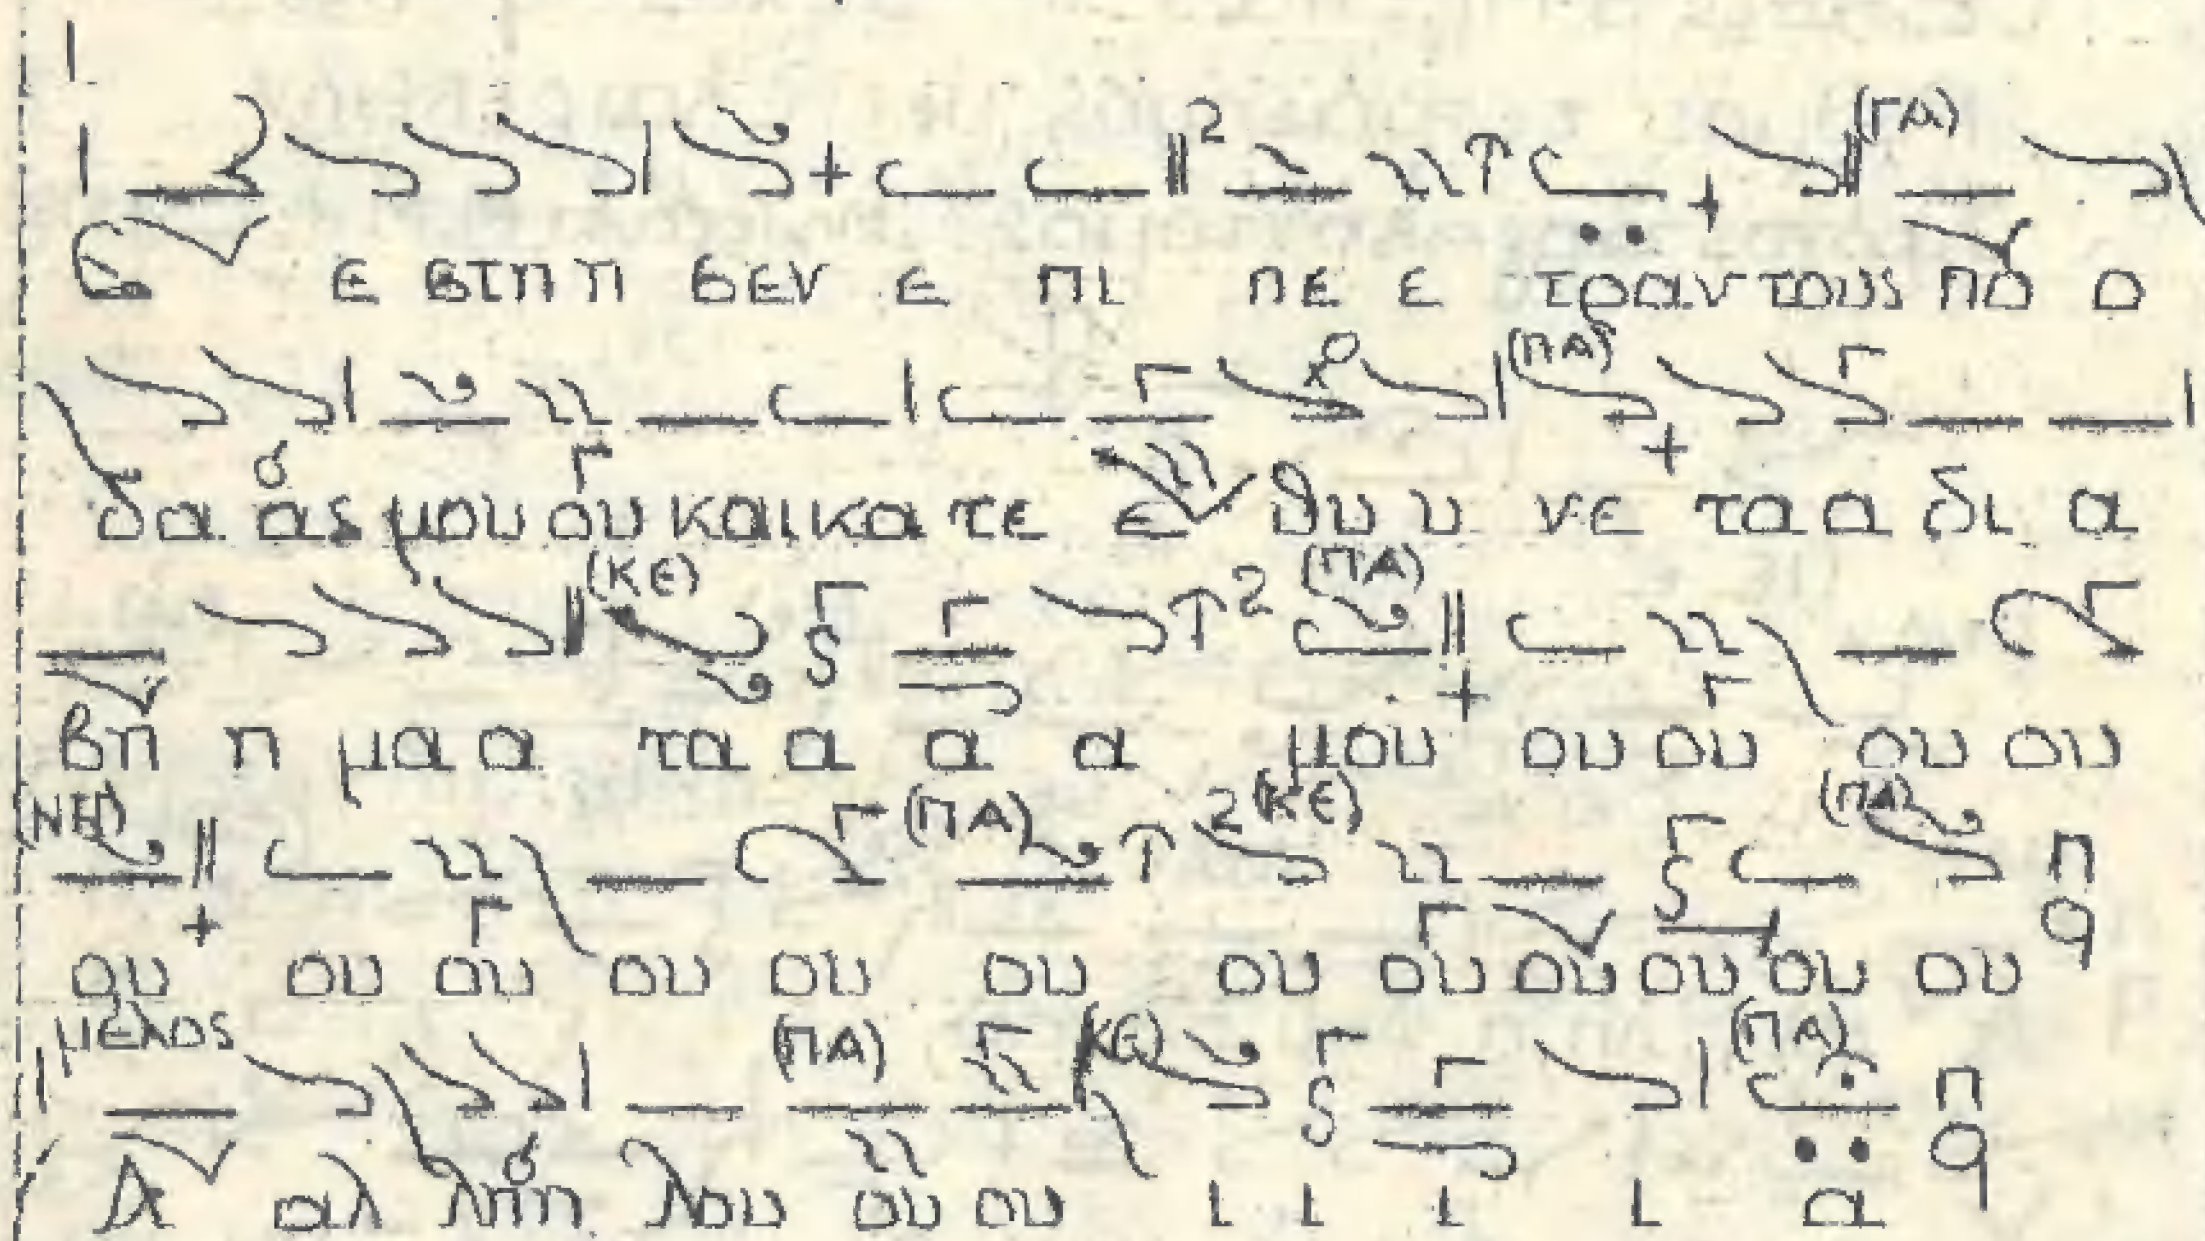 (ΓΑ)
ε στη η σεν ε πι πε ε τραν τους πο ο
(ΠΑ)
δα ας μου ου και κα τε ε θυ υ νε τα α δι α
(ΚΕ) (ΠΑ)
βη η μα α τα α α α μου ου ου ου ου
(ΝΗ) (ΠΑ) (ΚΕ) (ΠΑ)
ου ου ου ου ου ου ου ου ου ου ου ου
μέλος (ΠΑ) (ΚΕ) (ΠΑ)
Α αλ λη η λου ου ου ι ι ι ι α